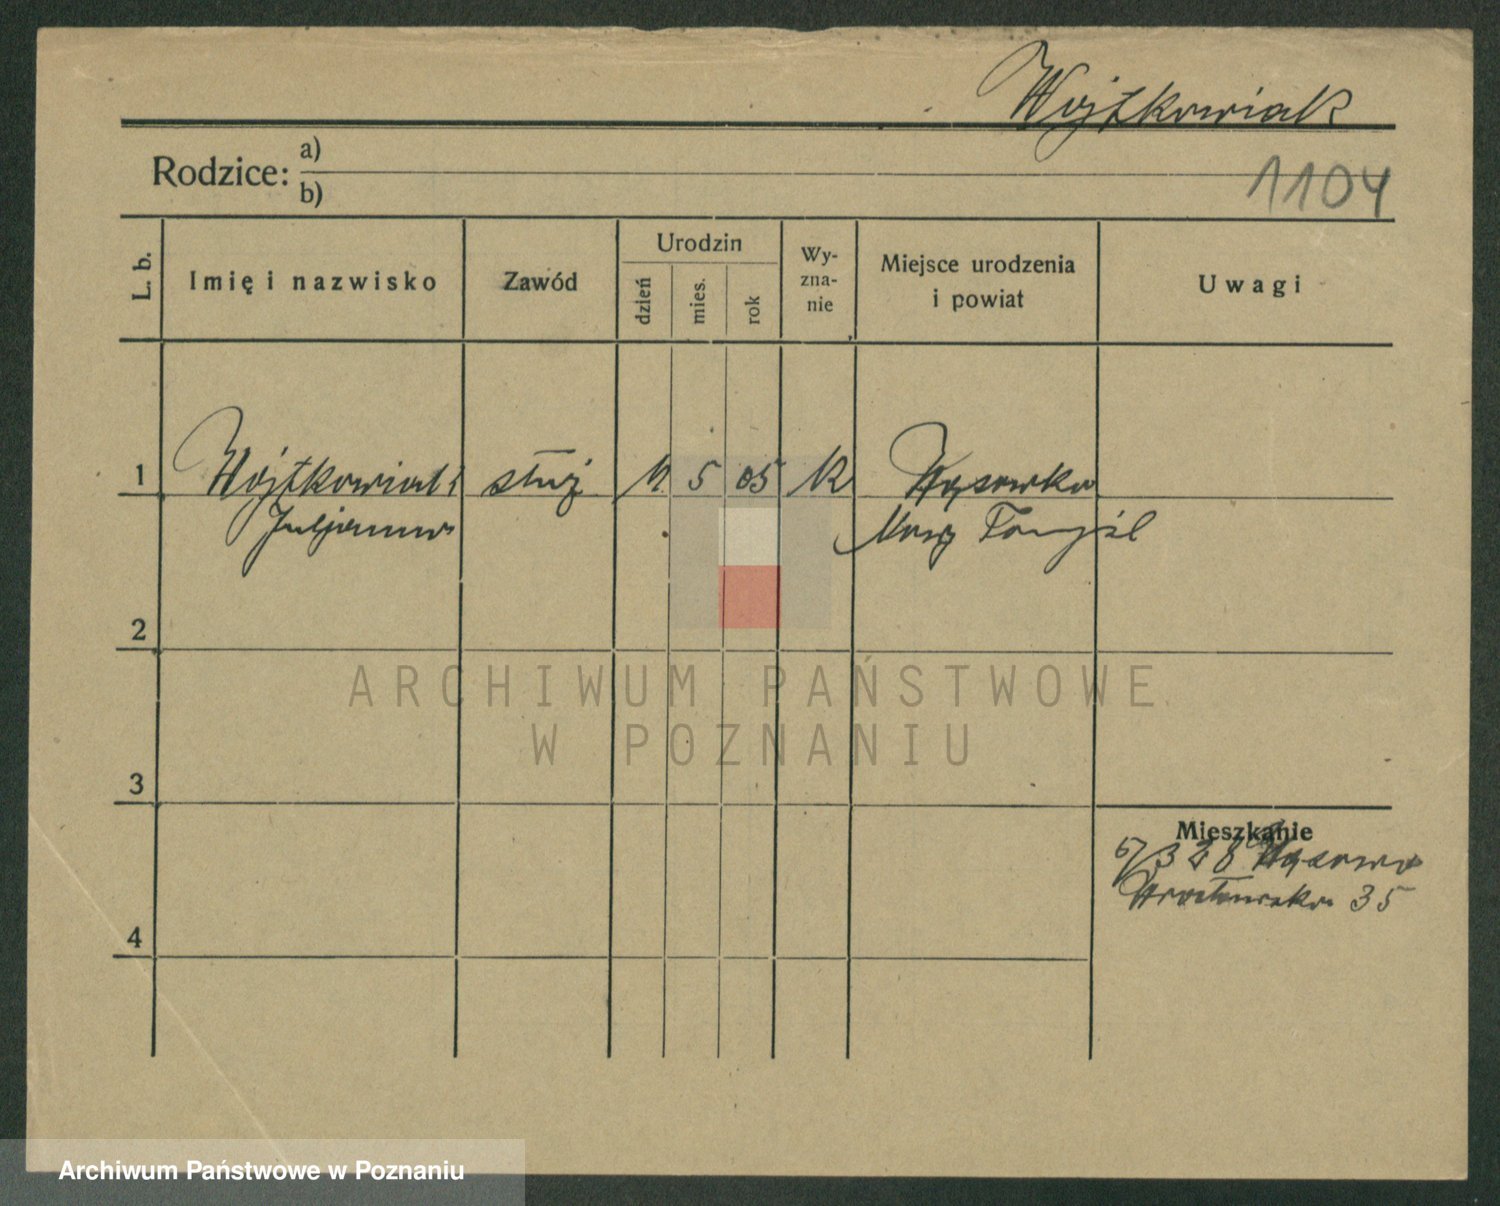 Wojtkowiak
Rodzice: a)
b)
1104
L. b.
Imię i nazwisko
Zawód
Urodzin
dzień
mies.
rok
Wy-
zna-
nie
Miejsce urodzenia
i powiat
Uwagi
1 Wojtkowiak służ 11. 5 05 K Wąsowko
Juljanna Nowy Tomyśl
2
3
4
Mieszkanie
5/3 28 Wąsowo
35
ARCHIWUM PAŃSTWOWE
W POZNANIU
Archiwum Państwowe w Poznaniu